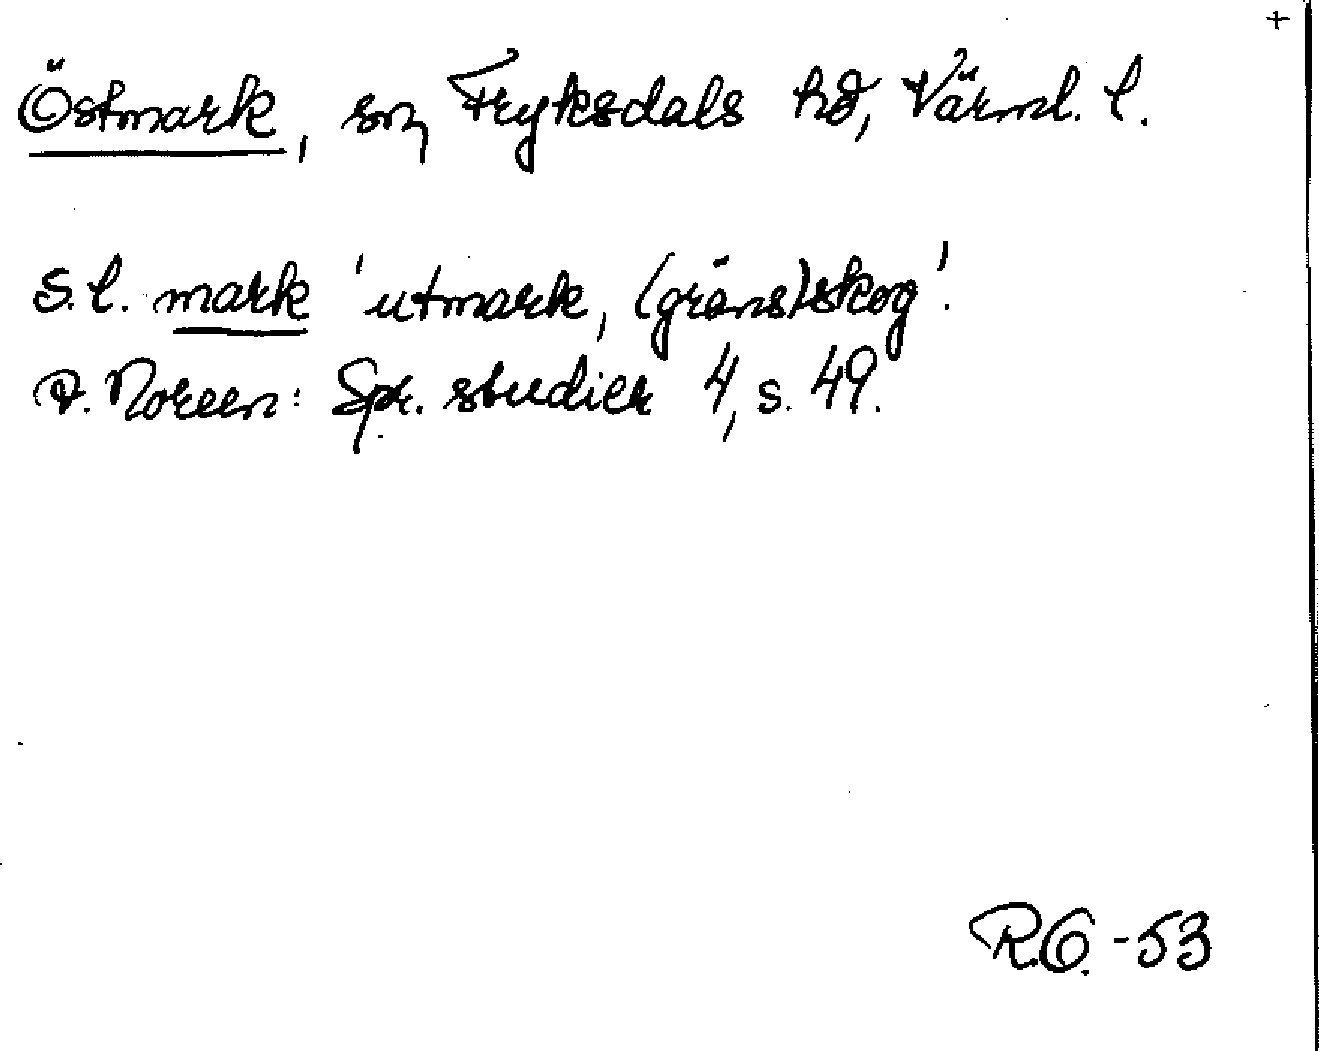 +
Östmark, sn, Fryksdals hd, Värml. l.
s. l. mark 'utmark, (gräns)skog'.
A. Noreen: Spr. studier 4, s. 49.
R.O. -53